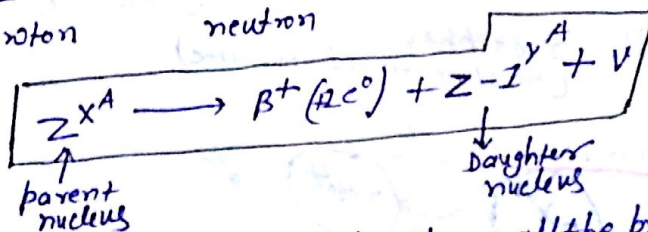 roton neutron
zXᴬ → β⁺ (+1e⁰) + Z-1Yᴬ + ν
parent nucleus
Daughter nucleus
all the b